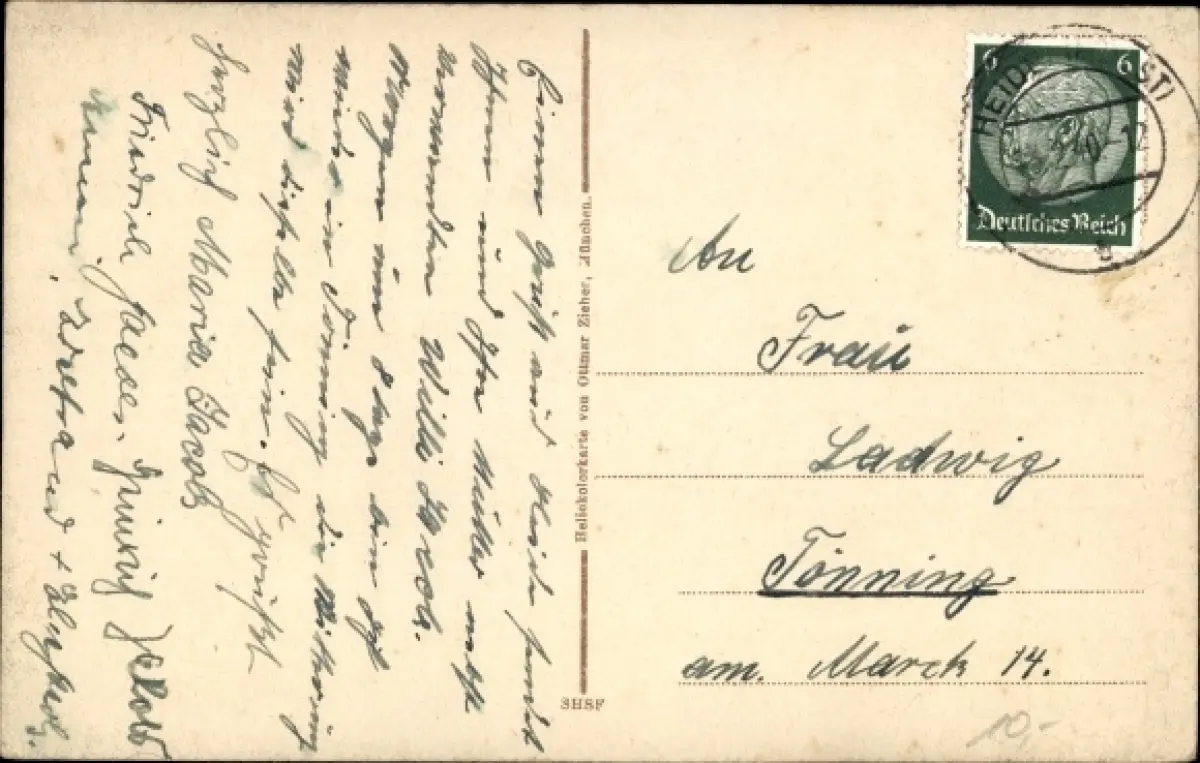 Einen Gruß aus Heide sendet
Ihnen und Ihre Mutter nebst
Verwandten Willi Jacob.
Morgen um 8 Uhr bin ich
wieder in Tönning die Witterung
wird dieselbe sein. Es grüßt
herzlich Maria Jacob
Friedrich Jacob. Heinrich Jacob
+
Heliokolorkarte von Ottmar Zieher, München.
3HSF
6
6
Deutsches Reich
HEIDE (HOLST)
-12
b
An
Frau
Ladwig
Tönning
am. Marck 14.
10,-